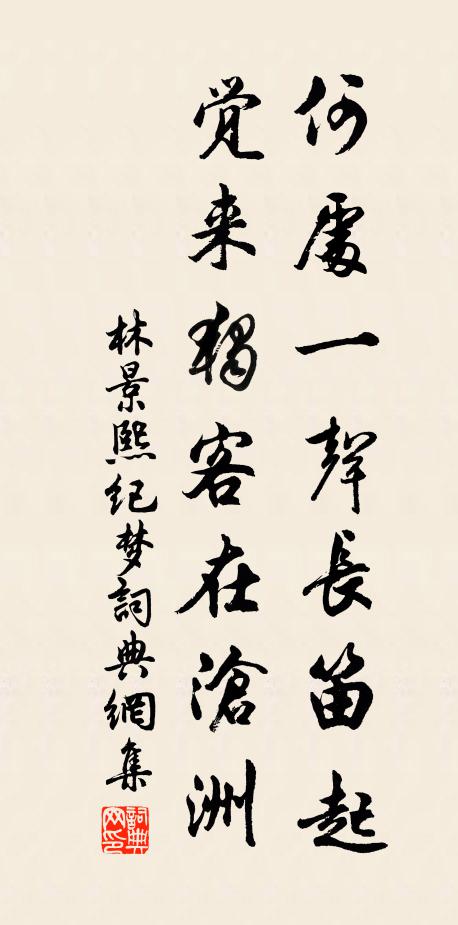 何處一聲長笛起
觉来獨客在滄洲
林景熙纪梦詞典網集
詞典网印